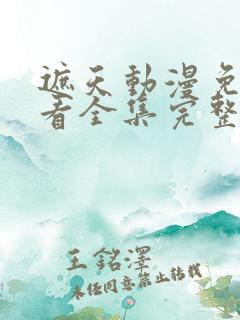 遮天動漫免
看全集完整
王銘澤
未经同意禁止转载